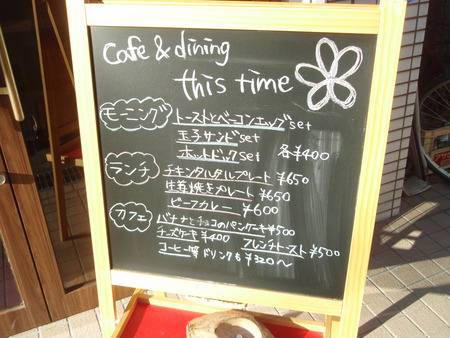 Cafe & dining
this time
モーニング トーストとベーコンエッグset
玉子サンドset
ホットドックset 各¥400
ランチ チキンタルタルプレート ¥650
生姜焼きプレート ¥650
ビーフカレー ¥600
カフェ バナナとチョコのパンケーキ ¥500
チーズケーキ ¥400 フレンチトースト ¥500
コーヒー等ドリンクも ¥320〜